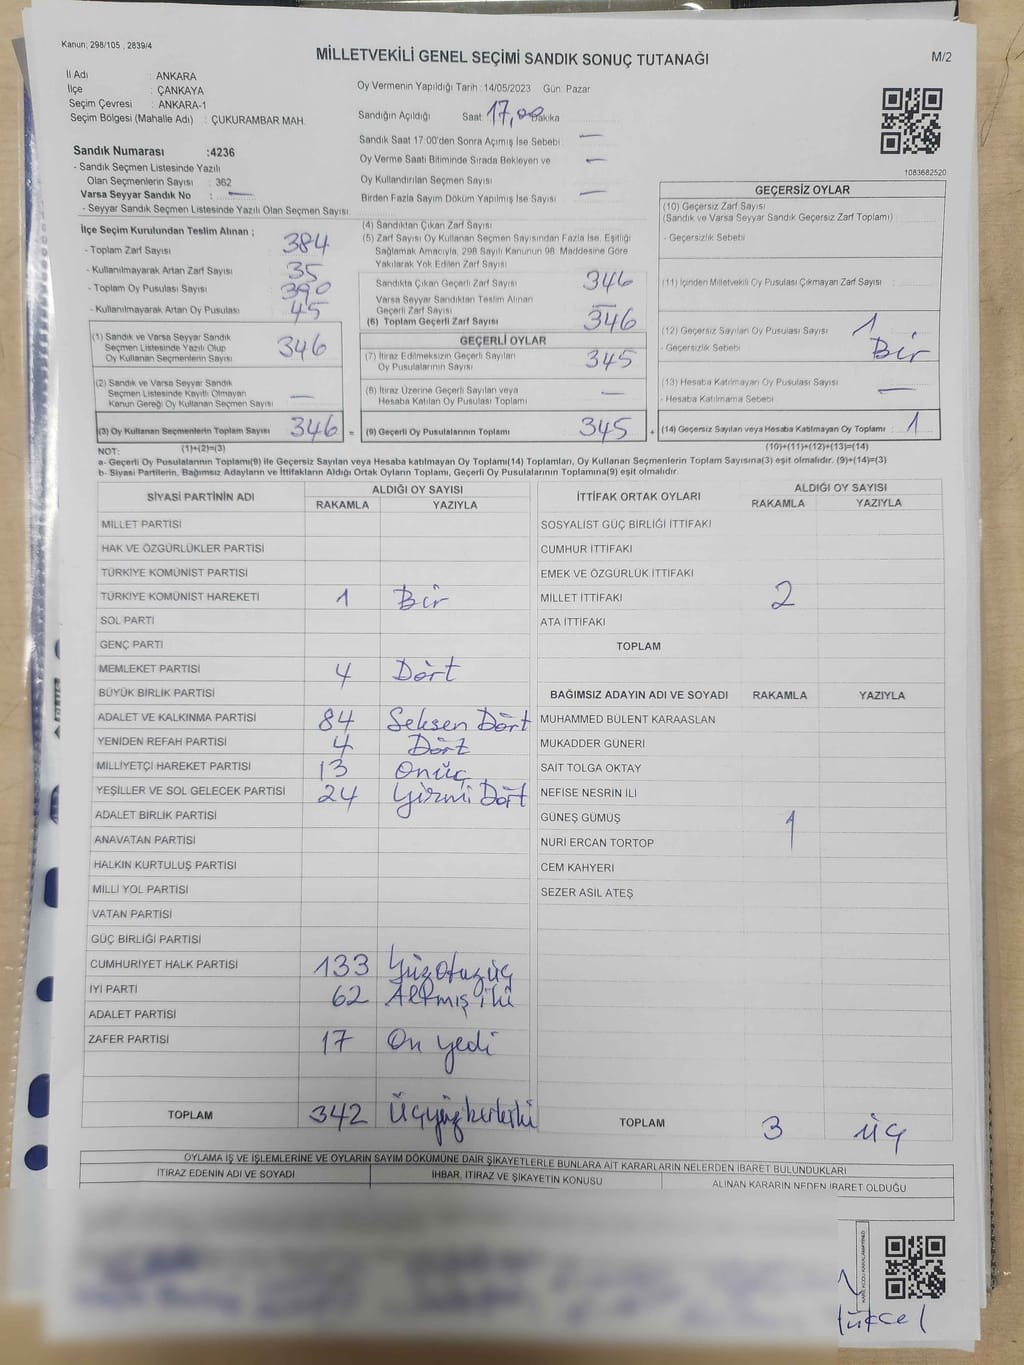 Kanun; 298/105 , 2839/4
MİLLETVEKİLİ GENEL SEÇİMİ SANDIK SONUÇ TUTANAĞI
M/2
İl Adı : ANKARA
İlçe : ÇANKAYA
Seçim Çevresi : ANKARA-1
Seçim Bölgesi (Mahalle Adı) : ÇUKURAMBAR MAH.
Oy Vermenin Yapıldığı Tarih : 14/05/2023 Gün: Pazar
Sandığın Açıldığı Saat: 17,00 Dakika
Sandık Saat 17:00'den Sonra Açımış İse Sebebi : —
Oy Verme Saati Bitiminde Sırada Bekleyen ve
Oy Kullandırılan Seçmen Sayısı : —
Birden Fazla Sayım Döküm Yapılmış İse Sayısı : —
1083682520
Sandık Numarası :4236
- Sandık Seçmen Listesinde Yazılı
Olan Seçmenlerin Sayısı : 362
Varsa Seyyar Sandık No : —
- Seyyar Sandık Seçmen Listesinde Yazılı Olan Seçmen Sayısı:
İlçe Seçim Kurulundan Teslim Alınan ;
- Toplam Zarf Sayısı : 384
- Kullanılmayarak Artan Zarf Sayısı : 35
- Toplam Oy Pusulası Sayısı : 390
- Kullanılmayarak Artan Oy Pusulası : 45
(1) Sandık ve Varsa Seyyar Sandık
Seçmen Listesinde Yazılı Olup
Oy Kullanan Seçmenlerin Sayısı : 346
(2) Sandık ve Varsa Seyyar Sandık
Seçmen Listesinde Kayıtlı Olmayan
Kanun Gereği Oy Kullanan Seçmen Sayısı : —
(3) Oy Kullanan Seçmenlerin Toplam Sayısı : 346 =
(4) Sandıktan Çıkan Zarf Sayısı :
(5) Zarf Sayısı Oy Kullanan Seçmen Sayısından Fazla İse, Eşitliği
Sağlamak Amacıyla, 298 Sayılı Kanunun 98. Maddesine Göre
Yakılarak Yok Edilen Zarf Sayısı :
Sandıkta Çıkan Geçerli Zarf Sayısı : 346
Varsa Seyyar Sandıktan Teslim Alınan
Geçerli Zarf Sayısı : —
(6) Toplam Geçerli Zarf Sayısı : 346
GEÇERLİ OYLAR
(7) İtiraz Edilmeksizin Geçerli Sayılan
Oy Pusulalarının Sayısı : 345
(8) İtiraz Üzerine Geçerli Sayılan veya
Hesaba Katılan Oy Pusulası Toplamı : —
(9) Geçerli Oy Pusulalarının Toplamı : 345 +
GEÇERSİZ OYLAR
(10) Geçersiz Zarf Sayısı
(Sandık ve Varsa Seyyar Sandık Geçersiz Zarf Toplamı) :
- Geçersizlik Sebebi :
(11) İçinden Milletvekili Oy Pusulası Çıkmayan Zarf Sayısı :
(12) Geçersiz Sayılan Oy Pusulası Sayısı : 1
- Geçersizlik Sebebi : Bir
(13) Hesaba Katılmayan Oy Pusulası Sayısı : —
- Hesaba Katılmama Sebebi :
(14) Geçersiz Sayılan veya Hesaba Katılmayan Oy Toplamı : 1
NOT: (1)+(2)=(3)
(10)+(11)+(12)+(13)=(14)
a- Geçerli Oy Pusulalarının Toplamı(9) İle Geçersiz Sayılan veya Hesaba katılmayan Oy Toplamı(14) Toplamları, Oy Kullanan Seçmenlerin Toplam Sayısına(3) eşit olmalıdır. (9)+(14)=(3)
b- Siyasi Partilerin, Bağımsız Adayların ve İttifakların Aldığı Ortak Oyların Toplamı, Geçerli Oy Pusulalarının Toplamına(9) eşit olmalıdır.
SİYASİ PARTİNİN ADI ALDIĞI OY SAYISI
RAKAMLA YAZIYLA
MİLLET PARTİSİ
HAK VE ÖZGÜRLÜKLER PARTİSİ
TÜRKİYE KOMÜNİST PARTİSİ
TÜRKİYE KOMÜNİST HAREKETİ 1 Bir
SOL PARTİ
GENÇ PARTİ
MEMLEKET PARTİSİ 4 Dört
BÜYÜK BİRLİK PARTİSİ
ADALET VE KALKINMA PARTİSİ 84 Seksen Dört
YENİDEN REFAH PARTİSİ 4 Dört
MİLLİYETÇİ HAREKET PARTİSİ 13 Onüç
YEŞİLLER VE SOL GELECEK PARTİSİ 24 Yirmi Dört
ADALET BİRLİK PARTİSİ
ANAVATAN PARTİSİ
HALKIN KURTULUŞ PARTİSİ
MİLLİ YOL PARTİSİ
VATAN PARTİSİ
GÜÇ BİRLİĞİ PARTİSİ
CUMHURİYET HALK PARTİSİ 133 Yüzotuzüç
İYİ PARTİ 62 Altmış iki
ADALET PARTİSİ
ZAFER PARTİSİ 17 On yedi
TOPLAM 342
İTTİFAK ORTAK OYLARI ALDIĞI OY SAYISI
RAKAMLA YAZIYLA
SOSYALİST GÜÇ BİRLİĞİ İTTİFAKI
CUMHUR İTTİFAKI
EMEK VE ÖZGÜRLÜK İTTİFAKI
MİLLET İTTİFAKI 2
ATA İTTİFAKI
TOPLAM
BAĞIMSIZ ADAYIN ADI VE SOYADI RAKAMLA YAZIYLA
MUHAMMED BÜLENT KARAASLAN
MUKADDER GÜNERİ
SAİT TOLGA OKTAY
NEFİSE NESRİN İLİ
GÜNEŞ GÜMÜŞ 1
NURİ ERCAN TORTOP
CEM KAHYERİ
SEZER ASIL ATEŞ
TOPLAM 3 üç
OYLAMA İŞ VE İŞLEMLERİNE VE OYLARIN SAYIM DÖKÜMÜNE DAİR ŞİKAYETLERLE BUNLARA AİT KARARLARIN NELERDEN İBARET BULUNDUKLARI
İTİRAZ EDENİN ADI VE SOYADI İHBAR, İTİRAZ VE ŞİKAYETİN KONUSU ALINAN KARARIN NEDEN İBARET OLDUĞU